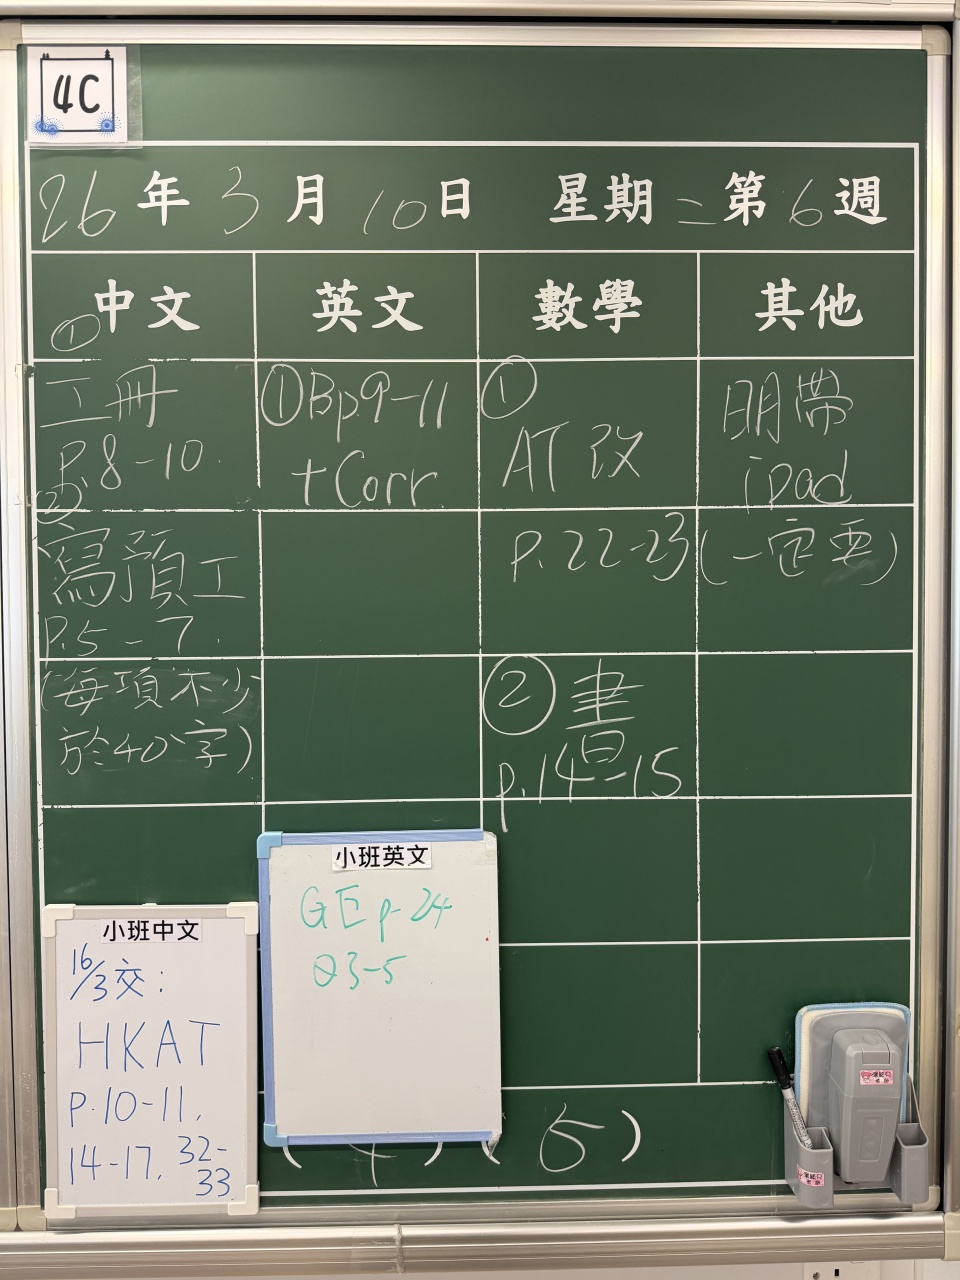 4C
26年3月10日 星期二第6週
中文 英文 數學 其他
①
工冊
P.8-10.
②
寫預工
P.5-7.
(每項不少
於40字)
①Bp9-11
+Corr
①
AT改
p.22-23
②書
p.14-15
明帶
ipad
(一定要)
小班英文
GE p.24
Q3-5
小班中文
16/3交:
HKAT
P.10-11,
14-17, 32-
33
( ) ( 5 )